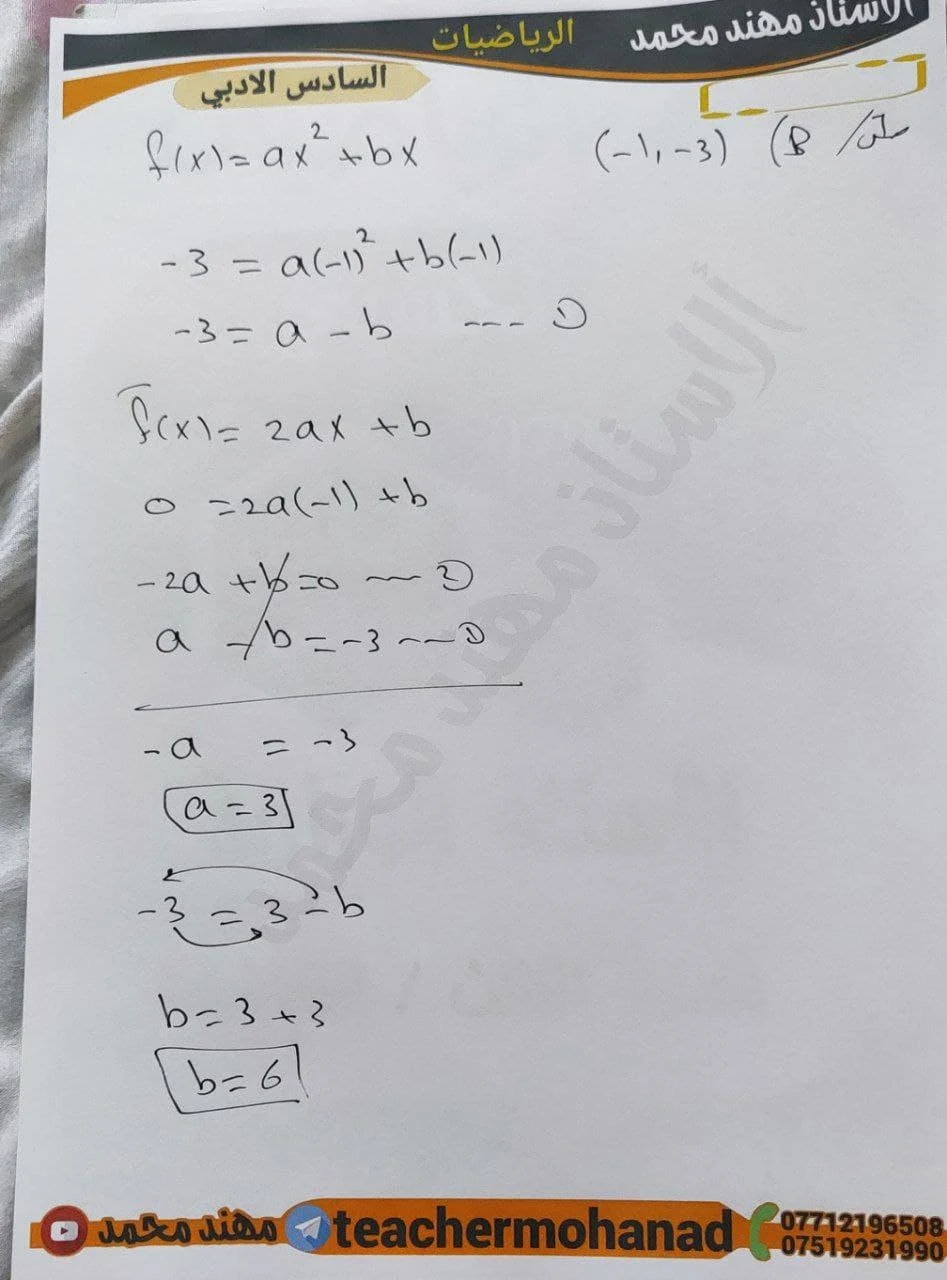 الاستاذ مهند محمد
الرياضيات
السادس الادبي
(B (-1, -3)
f(x) = ax² + bx
-3 = a(-1)² + b(-1)
-3 = a - b ---- ①
f̄(x) = 2ax + b
0 = 2a(-1) + b
-2a + b = 0 —— ②
a - b = -3 —— ①
-a = -3
a = 3
-3 = 3 - b
b = 3 + 3
b = 6
الاستاذ مهند محمد
مهند محمد teachermohanad 07712196508
07519231990